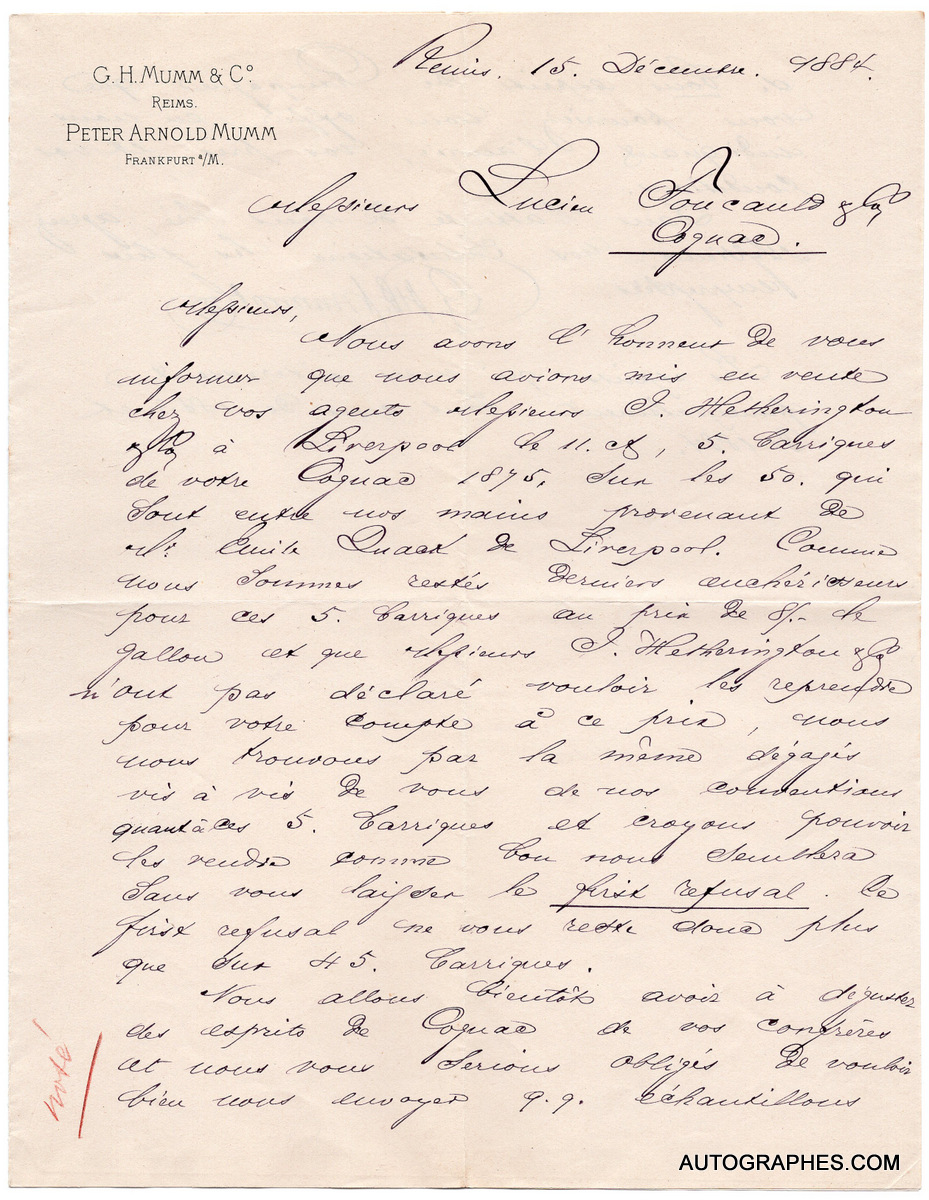 G. H. MUMM & Cº
REIMS.
PETER ARNOLD MUMM
FRANKFURT a/M.
Reims. 15. Décembre. 1884.
Messieurs Lucien Foucauld & Co
Cognac.
Messieurs,
Nous avons l'honneur de vous
informer que nous avions mis en vente
chez vos agents Messieurs J. Hetherington
& Co à Liverpool le 11. ct, 5. barriques
de votre Cognac 1875, sur les 50. qui
sont entre nos mains provenant de
Mr. Emile Quact de Liverpool. Comme
nous sommes restés derniers enchérisseurs
pour ces 5. barriques au prix de 8/- le
gallon et que Messieurs J. Hetherington & Co
n'ont pas déclaré vouloir les reprendre
pour votre compte à ce prix, nous
nous trouvons par la même dégagés
vis à vis de vous de nos conventions
quant à ces 5. barriques et croyons pouvoir
les vendre comme bon nous semblera
sans vous laisser le first refusal. Ce
first refusal ne vous reste donc plus
que sur 45. barriques.
Nous allons bientôt avoir à déguster
des esprits de Cognac de vos confrères
et nous vous serions obligés de vouloir
bien nous envoyer q.q. échantillons
noté
AUTOGRAPHES.COM